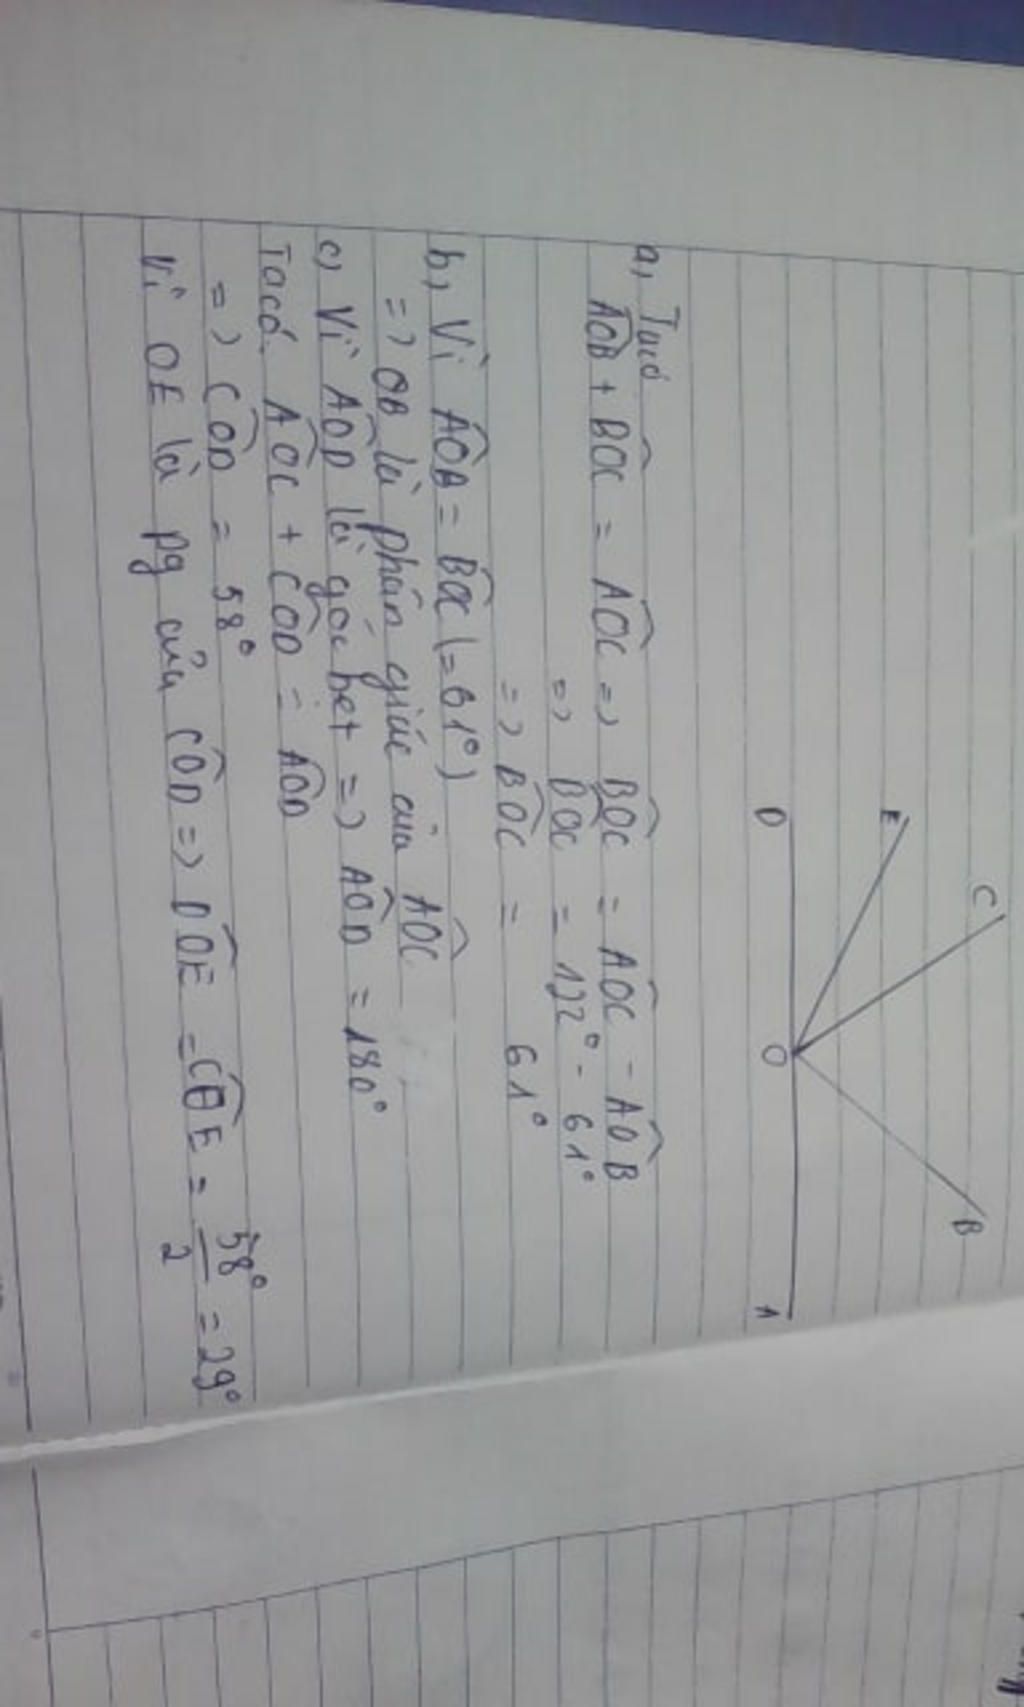 C
E
B
D
O
A
a, Tacó
AOB + BOC = AOC => BOC = AOC - AOB
=> BOC = 122° - 61°
=> BOC = 61°
b, Vì AOB = BOC (= 61°)
=> OB là phân giác của AOC
c, Vì AOD là góc bẹt => AOD = 180°
Tacó. AOC + COD = AOD
=> COD = 58°
Vì OE là pg của COD => DOE = COE = 58°/2 = 29°